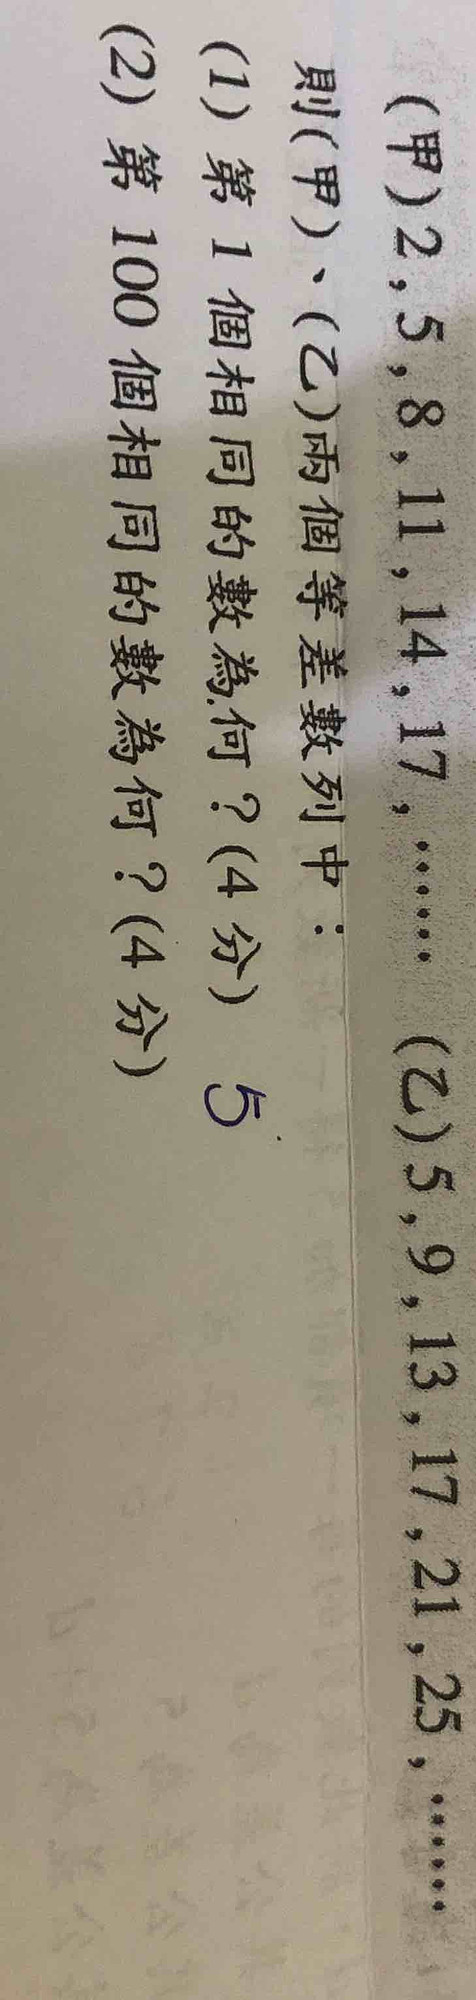 (甲)2,5,8,11,14,17,…… (乙)5,9,13,17,21,25,……
則(甲)、(乙)兩個等差數列中：
(1) 第 1 個相同的數為何？(4 分) 5
(2) 第 100 個相同的數為何？(4 分)